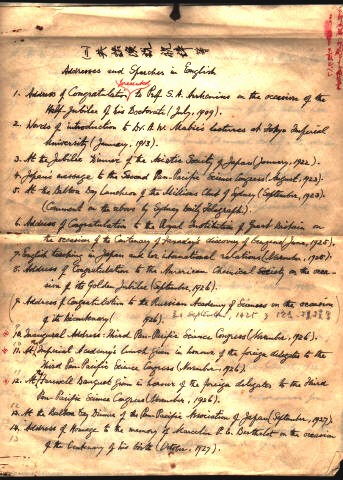 英語演説
Addresses and Speeches in English
presented
1. Address of Congratulation to Prof. S. A. Arrhenius on the occasion of the
Half-Jubilee of his Doctorate (July, 1909).
2. Words of introduction to Dr. H. W. Mabie's Lectures at Tokyo Imperial
University (January, 1913).
3. At the Jubilee Dinner of the Asiatic Society of Japan (January, 1922).
4. Japan's message to the Second Pan-Pacific Science Congress (August, 1923).
5. At the Balboa Day Luncheon of the Millions Club of Sydney (September, 1923).
(Comment on the above by Sydney Daily Telegraph).
6. Address of Congratulation to the Royal Institution of Great Britain on
the occasion of the Centenary of Faraday's discovery of Benzene (June, 1925).
7. English teaching in Japan and her international relations (November, 1925).
8. Address of Congratulation to the American Chemical Society on the occa-
sion of its Golden Jubilee (September, 1926).
9. Address of Congratulation to the Russian Academy of Sciences on the occasion
of its Bicentenary ( 1926).
September, 1925
10. Inaugural Address: Third Pan-Pacific Science Congress (November, 1926).
11. At Imperial Academy's Lunch given in honour of the foreign delegates to the
Third Pan-Pacific Science Congress (November, 1926).
12. At Farewell Banquet given in honour of the foreign delegates to the Third
Pan-Pacific Science Congress (November, 1926).
13. At the Balboa Day Dinner of the Pan-Pacific Association of Japan (September, 1927).
14. Address of Homage to the memory of Marcelin P. E. Berthelot on the occasion
of the Centenary of his birth (October, 1927).